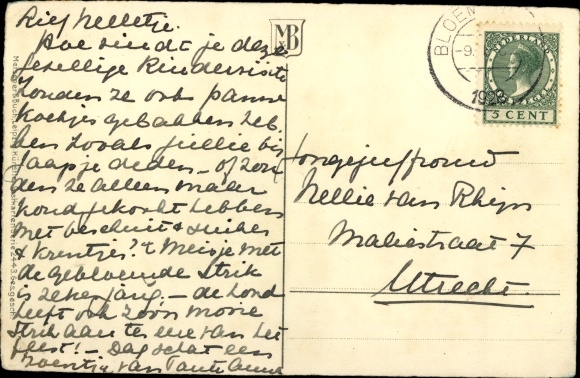 Lief Nelletje.
Hoe vindt je deze
gezellige kindervisite
Zouden ze ook panne
koekjes gebakken heb
ben zooals jullie bij
aapje deden – of zou
den ze alleen maar
hebben
met beschuit & suiker
& krentjes? 't Meisje met
de gebloemde strik
is zeker jarig. – de hond
heeft ook zoo'n mooie
strik aan ter eere van het
feest! – Dag schat een
zoentje van Tante Anna
MB
BLOEM
-9.
192
NEDERLAND
5 CENT
Jongejuffrouw
Nellie van Rhijn
Maliestraat 7
Utrecht.